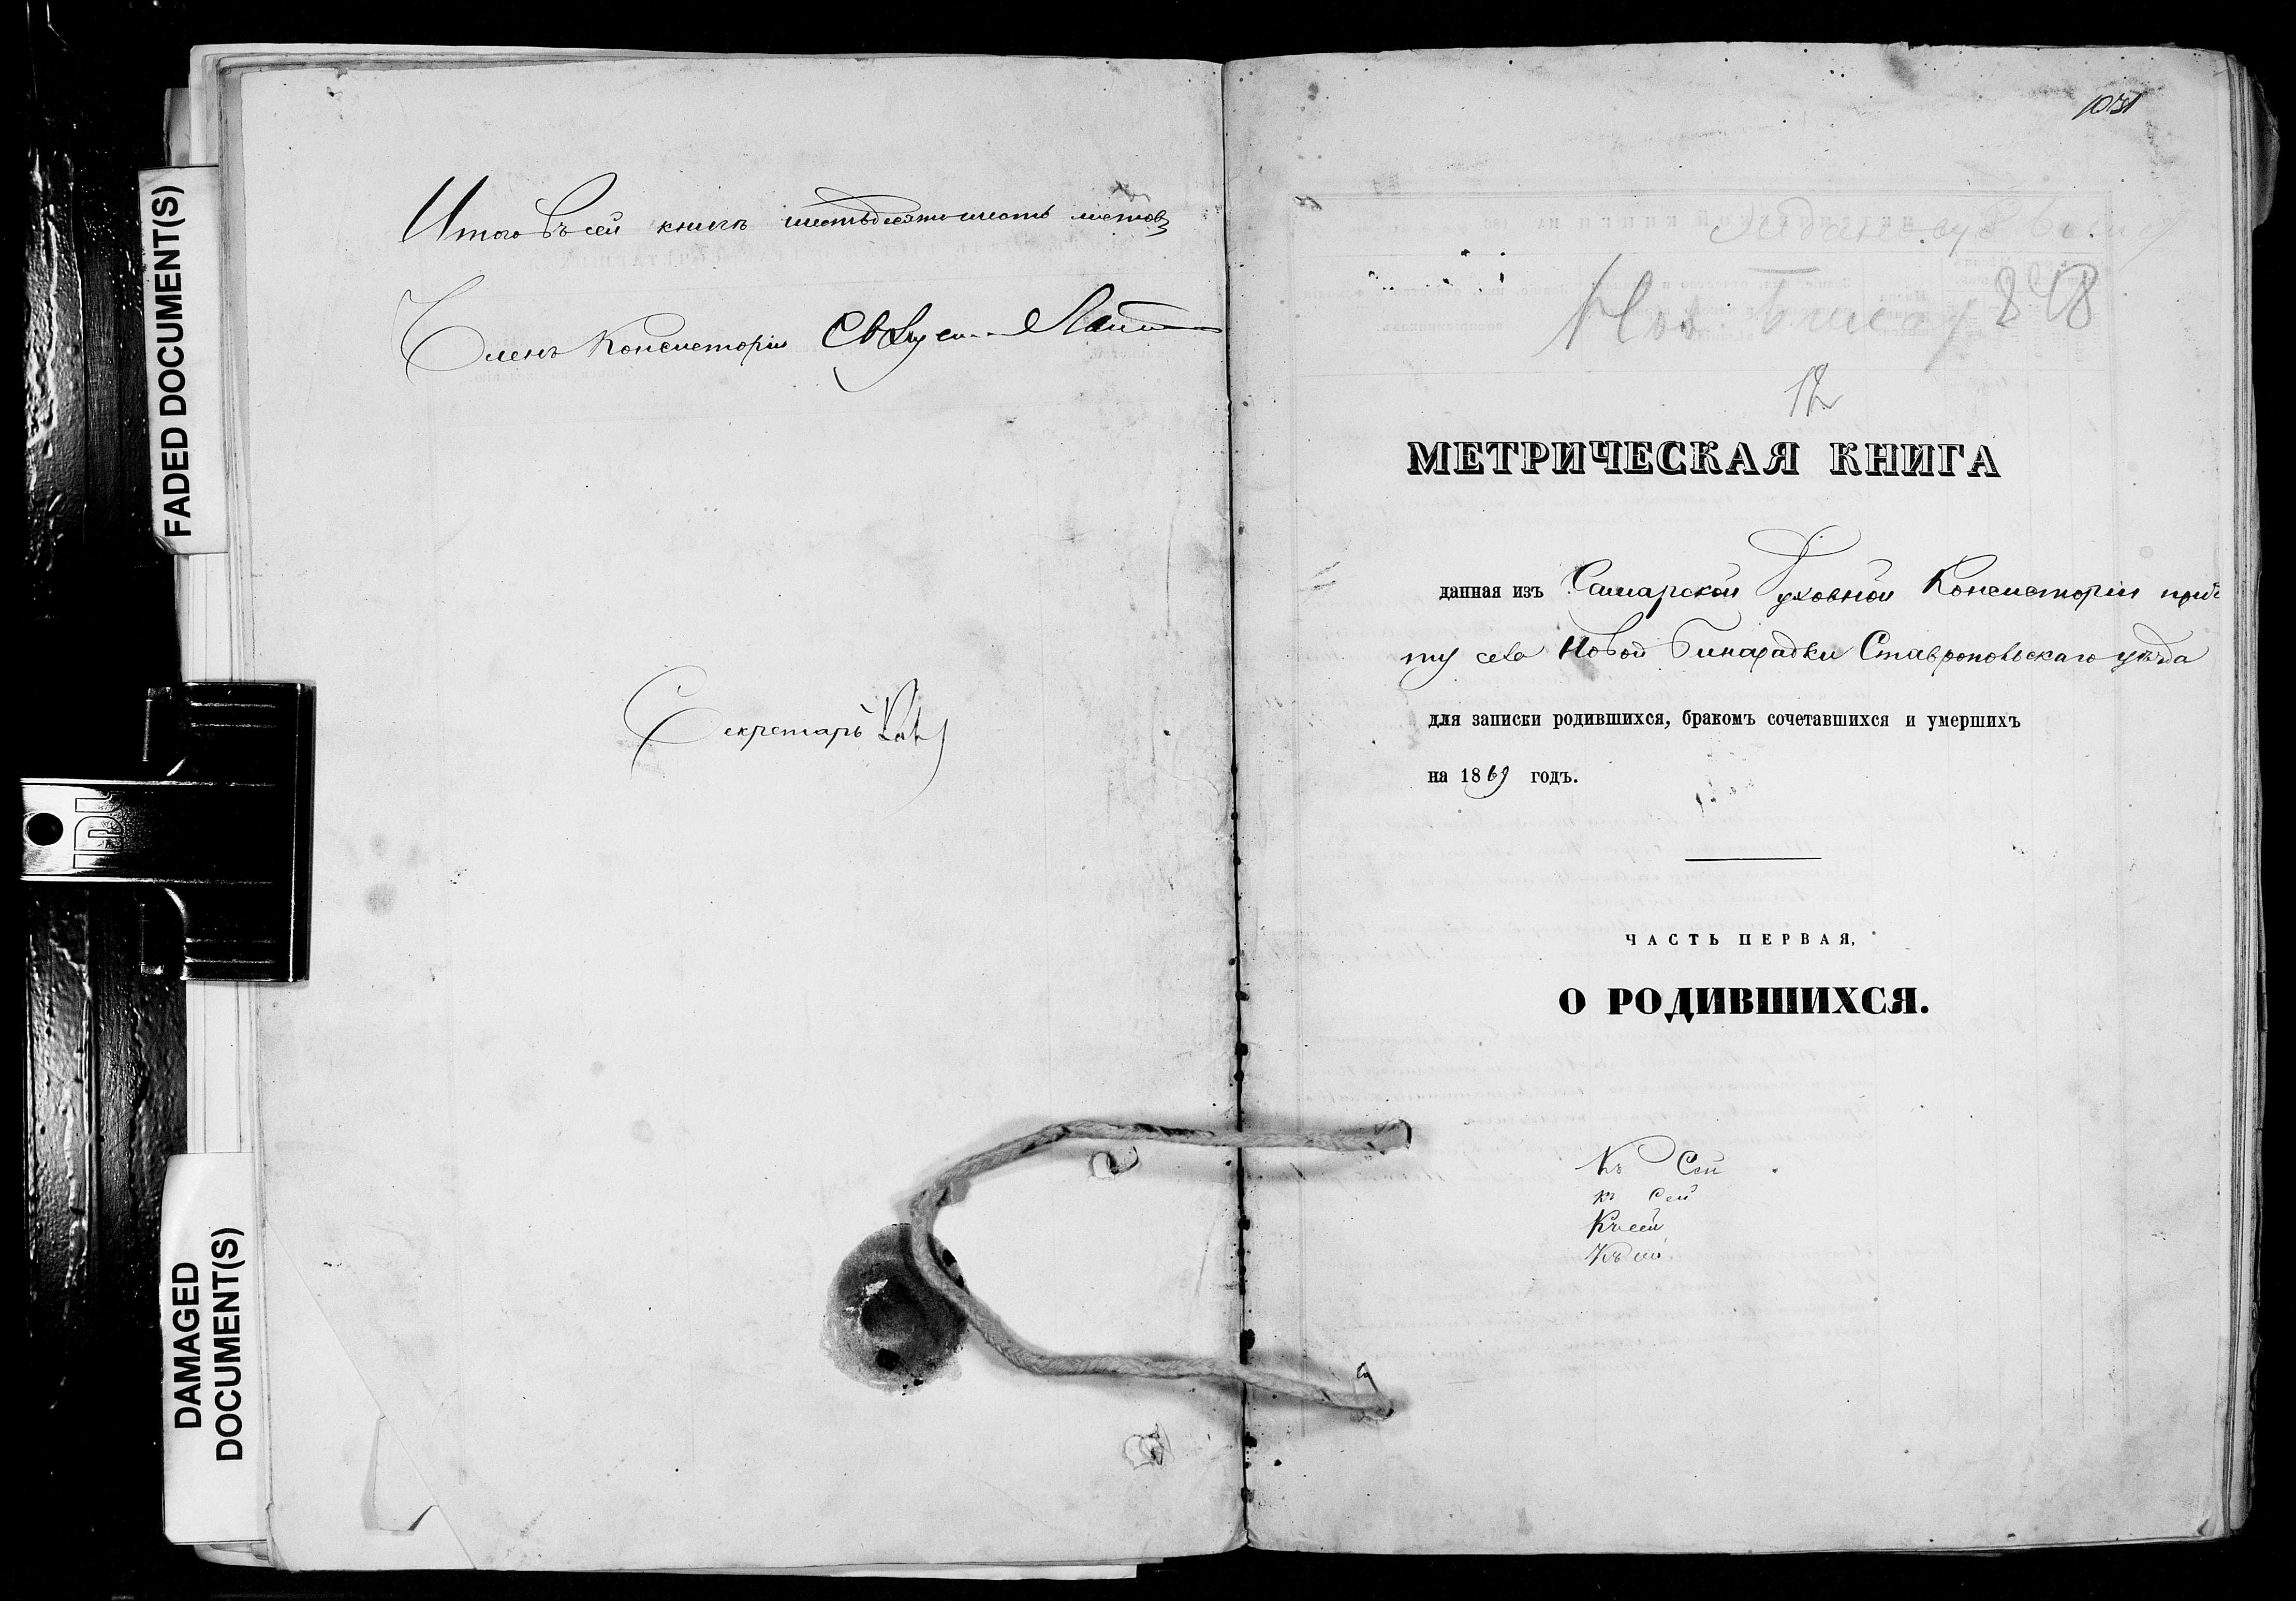 FADED DOCUMENT(S)
DAMAGED
DOCUMENT(S)
Итого въ сей книгѣ шестьдесятъ шесть листовъ
Членъ Консисторіи
Секретарь
1031
848
12
МЕТРИЧЕСКАЯ КНИГА
данная изъ Самарской Духовной Консисторіи прич
ту села Новой Бинарадки Ставропольскаго уѣзда
для записки родившихся, бракомъ сочетавшихся и умершихъ
на 1869 годъ.
ЧАСТЬ ПЕРВАЯ,
О РОДИВШИХСЯ.
Къ Сей
къ Сей
Къ сей
Къ сей